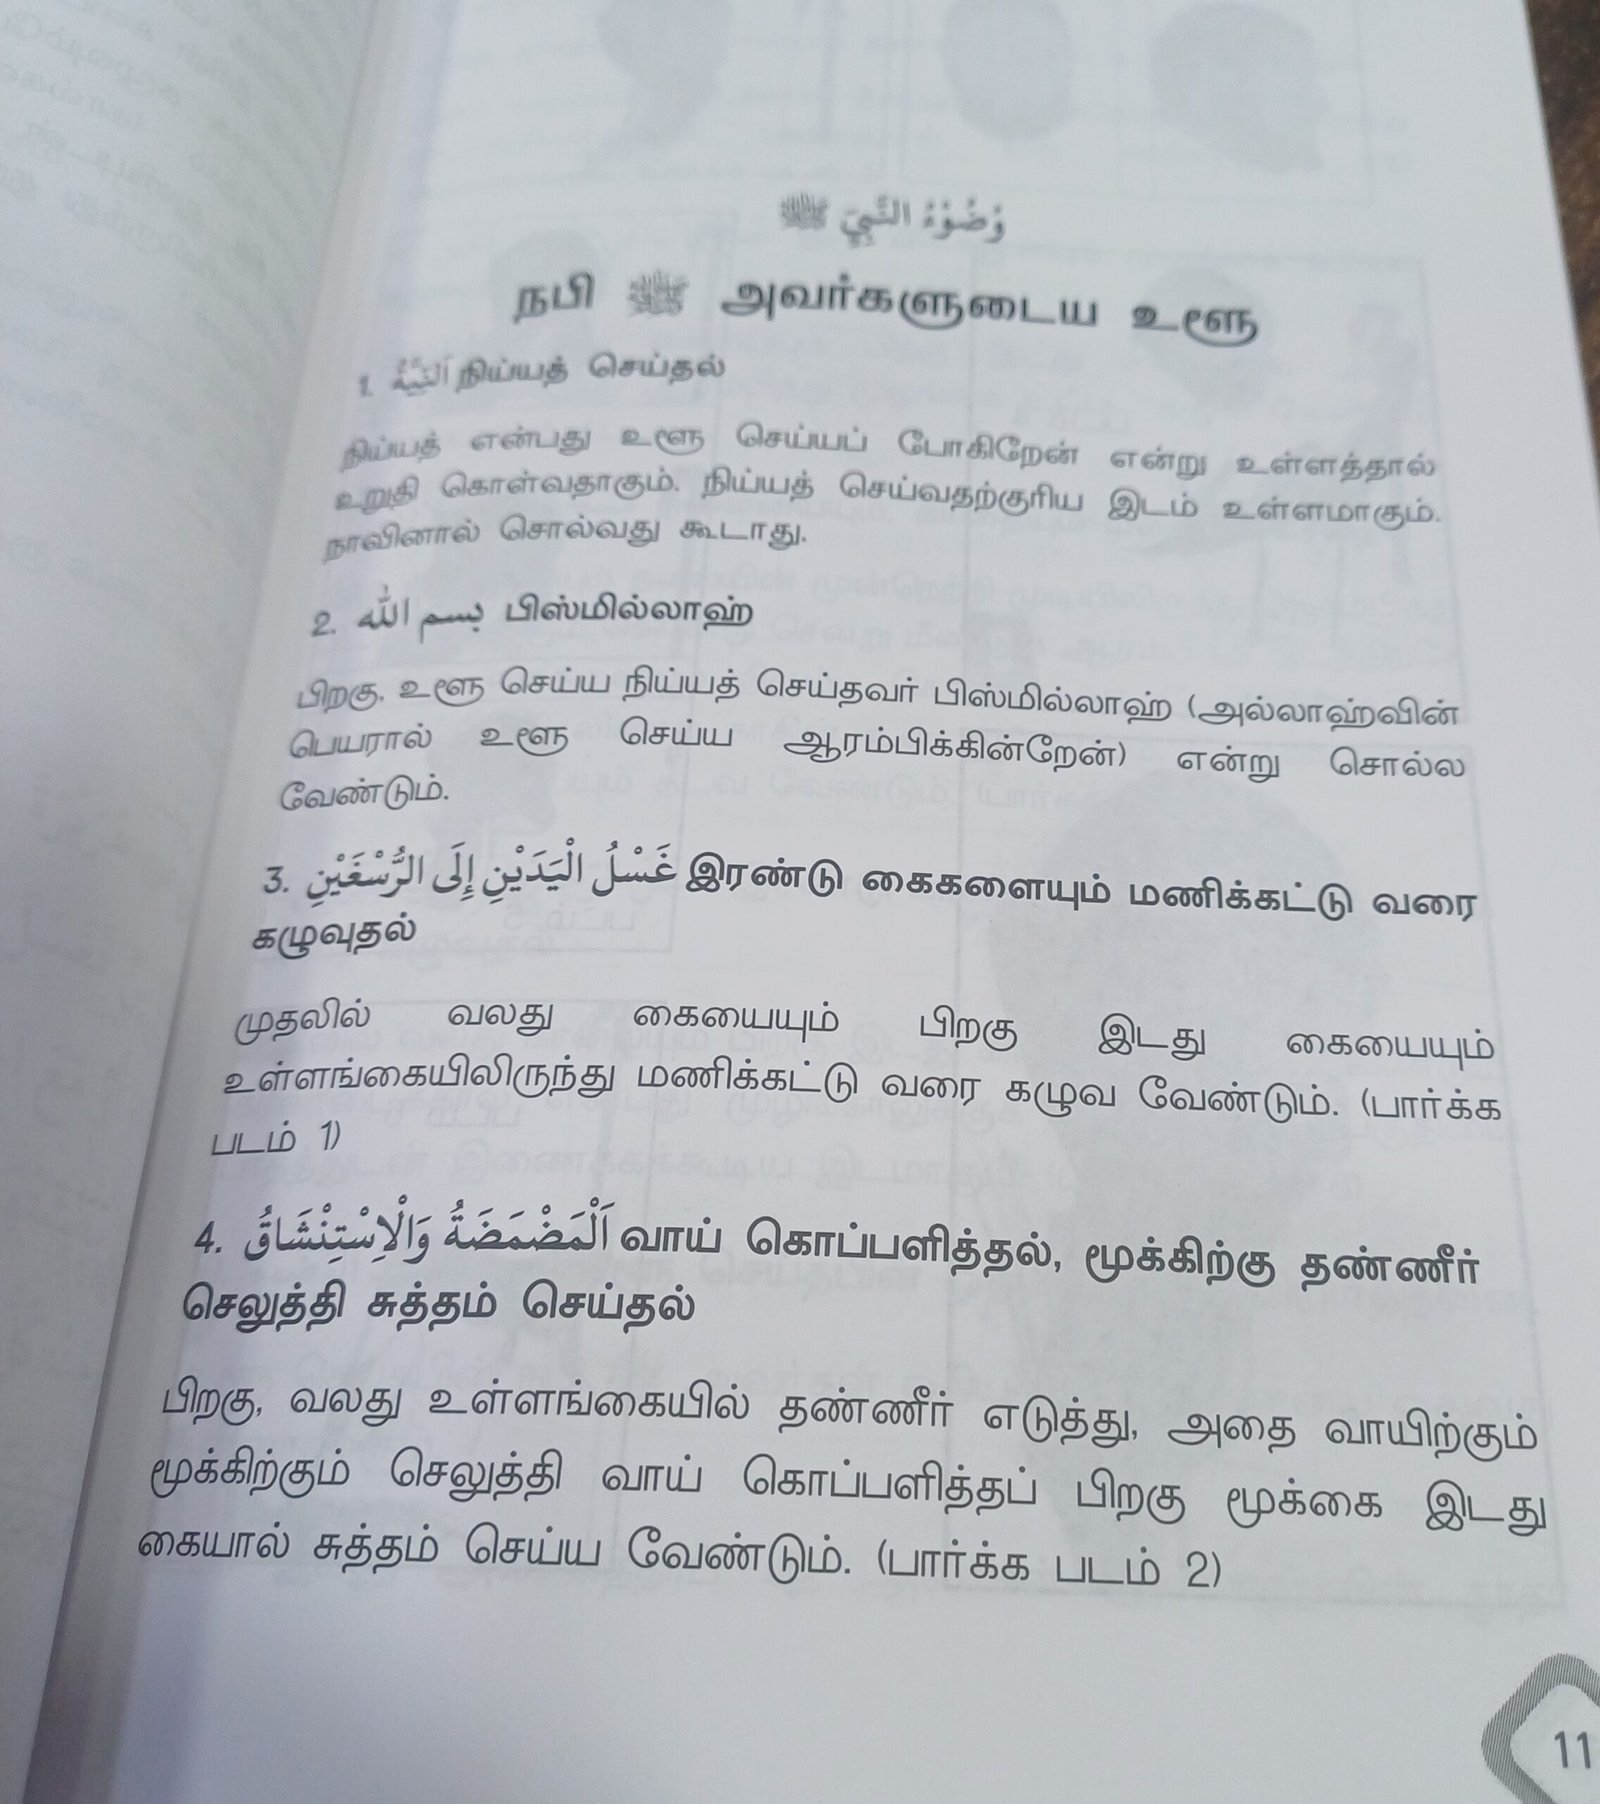 وُضُوْءُ النَّبِيِّ ﷺ
நபி ﷺ அவர்களுடைய உளூ
1. اَلنِّيَّةُ நிய்யத் செய்தல்
நிய்யத் என்பது உளூ செய்யப் போகிறேன் என்று உள்ளத்தால்
உறுதி கொள்வதாகும். நிய்யத் செய்வதற்குரிய இடம் உள்ளமாகும்.
நாவினால் சொல்வது கூடாது.
2. بسم الله பிஸ்மில்லாஹ்
பிறகு, உளூ செய்ய நிய்யத் செய்தவர் பிஸ்மில்லாஹ் (அல்லாஹ்வின்
பெயரால் உளூ செய்ய ஆரம்பிக்கின்றேன்) என்று சொல்ல
வேண்டும்.
3. غَسْلُ الْيَدَيْنِ إِلَى الرُّسْغَيْنِ இரண்டு கைகளையும் மணிக்கட்டு வரை
கழுவுதல்
முதலில் வலது கையையும் பிறகு இடது கையையும்
உள்ளங்கையிலிருந்து மணிக்கட்டு வரை கழுவ வேண்டும். (பார்க்க
படம் 1)
4. اَلْمَضْمَضَةُ وَالْاِسْتِنْشَاقُ வாய் கொப்பளித்தல், மூக்கிற்கு தண்ணீர்
செலுத்தி சுத்தம் செய்தல்
பிறகு, வலது உள்ளங்கையில் தண்ணீர் எடுத்து, அதை வாயிற்கும்
மூக்கிற்கும் செலுத்தி வாய் கொப்பளித்தப் பிறகு மூக்கை இடது
கையால் சுத்தம் செய்ய வேண்டும். (பார்க்க படம் 2)
11